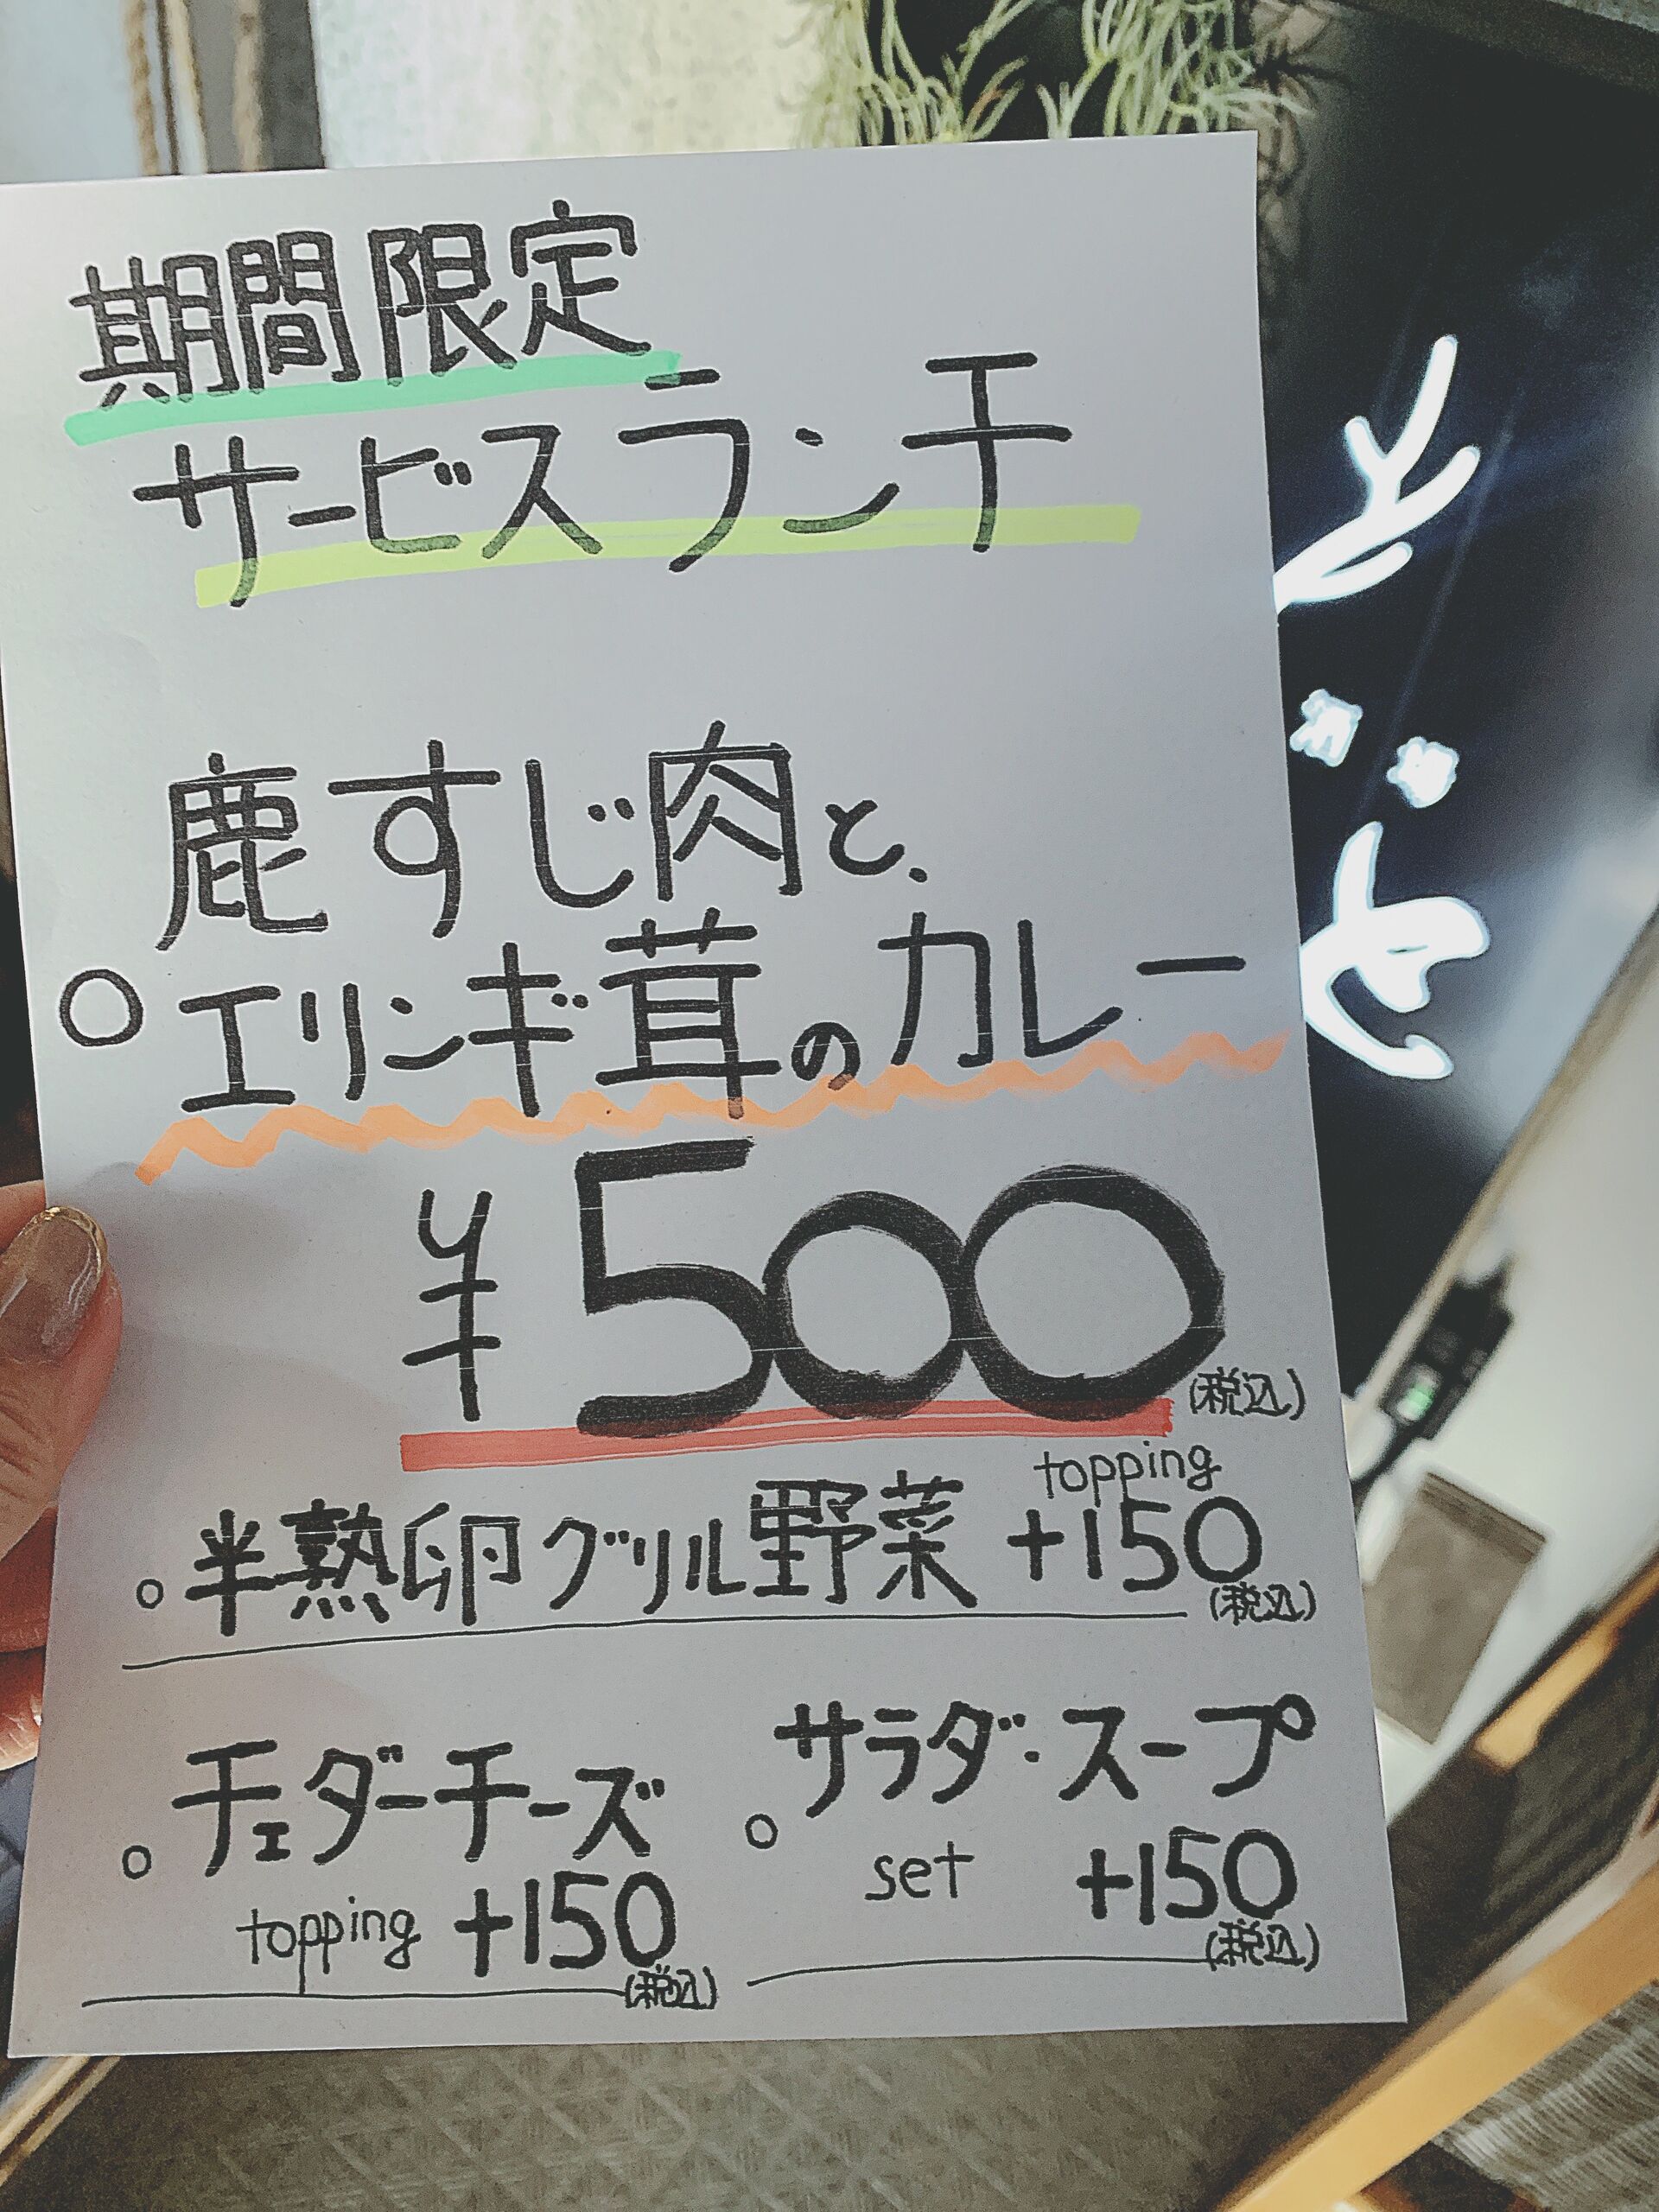 期間限定
サービスランチ
鹿すじ肉と、
○ エリンギ茸のカレー
¥500
(税込)
topping
○ 半熟卵グリル野菜 +150
(税込)
○ チェダーチーズ
topping +150
(税込)
○ サラダ・スープ
set +150
(税込)